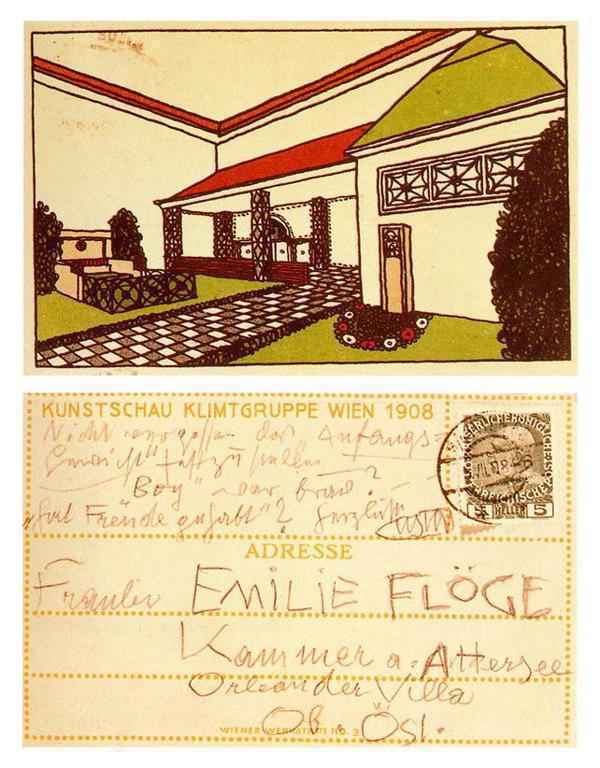 KUNSTSCHAU KLIMTGRUPPE WIEN 1908
Nicht vergessen das Anfangs=
Gewicht" festzustellen
"Boy" war brav?
"Hat Freude gehabt"? herzlichst
Gustav
KAISERLICHE KÖNIGLICHE ÖSTERREICHISCHE POST
5 HELLER 5
ADRESSE
Fräulein EMILIE FLÖGE
Kammer a. Attersee
Oleander Villa
Ob. Öst.
WIENER WERKSTÄTTE NO. 3